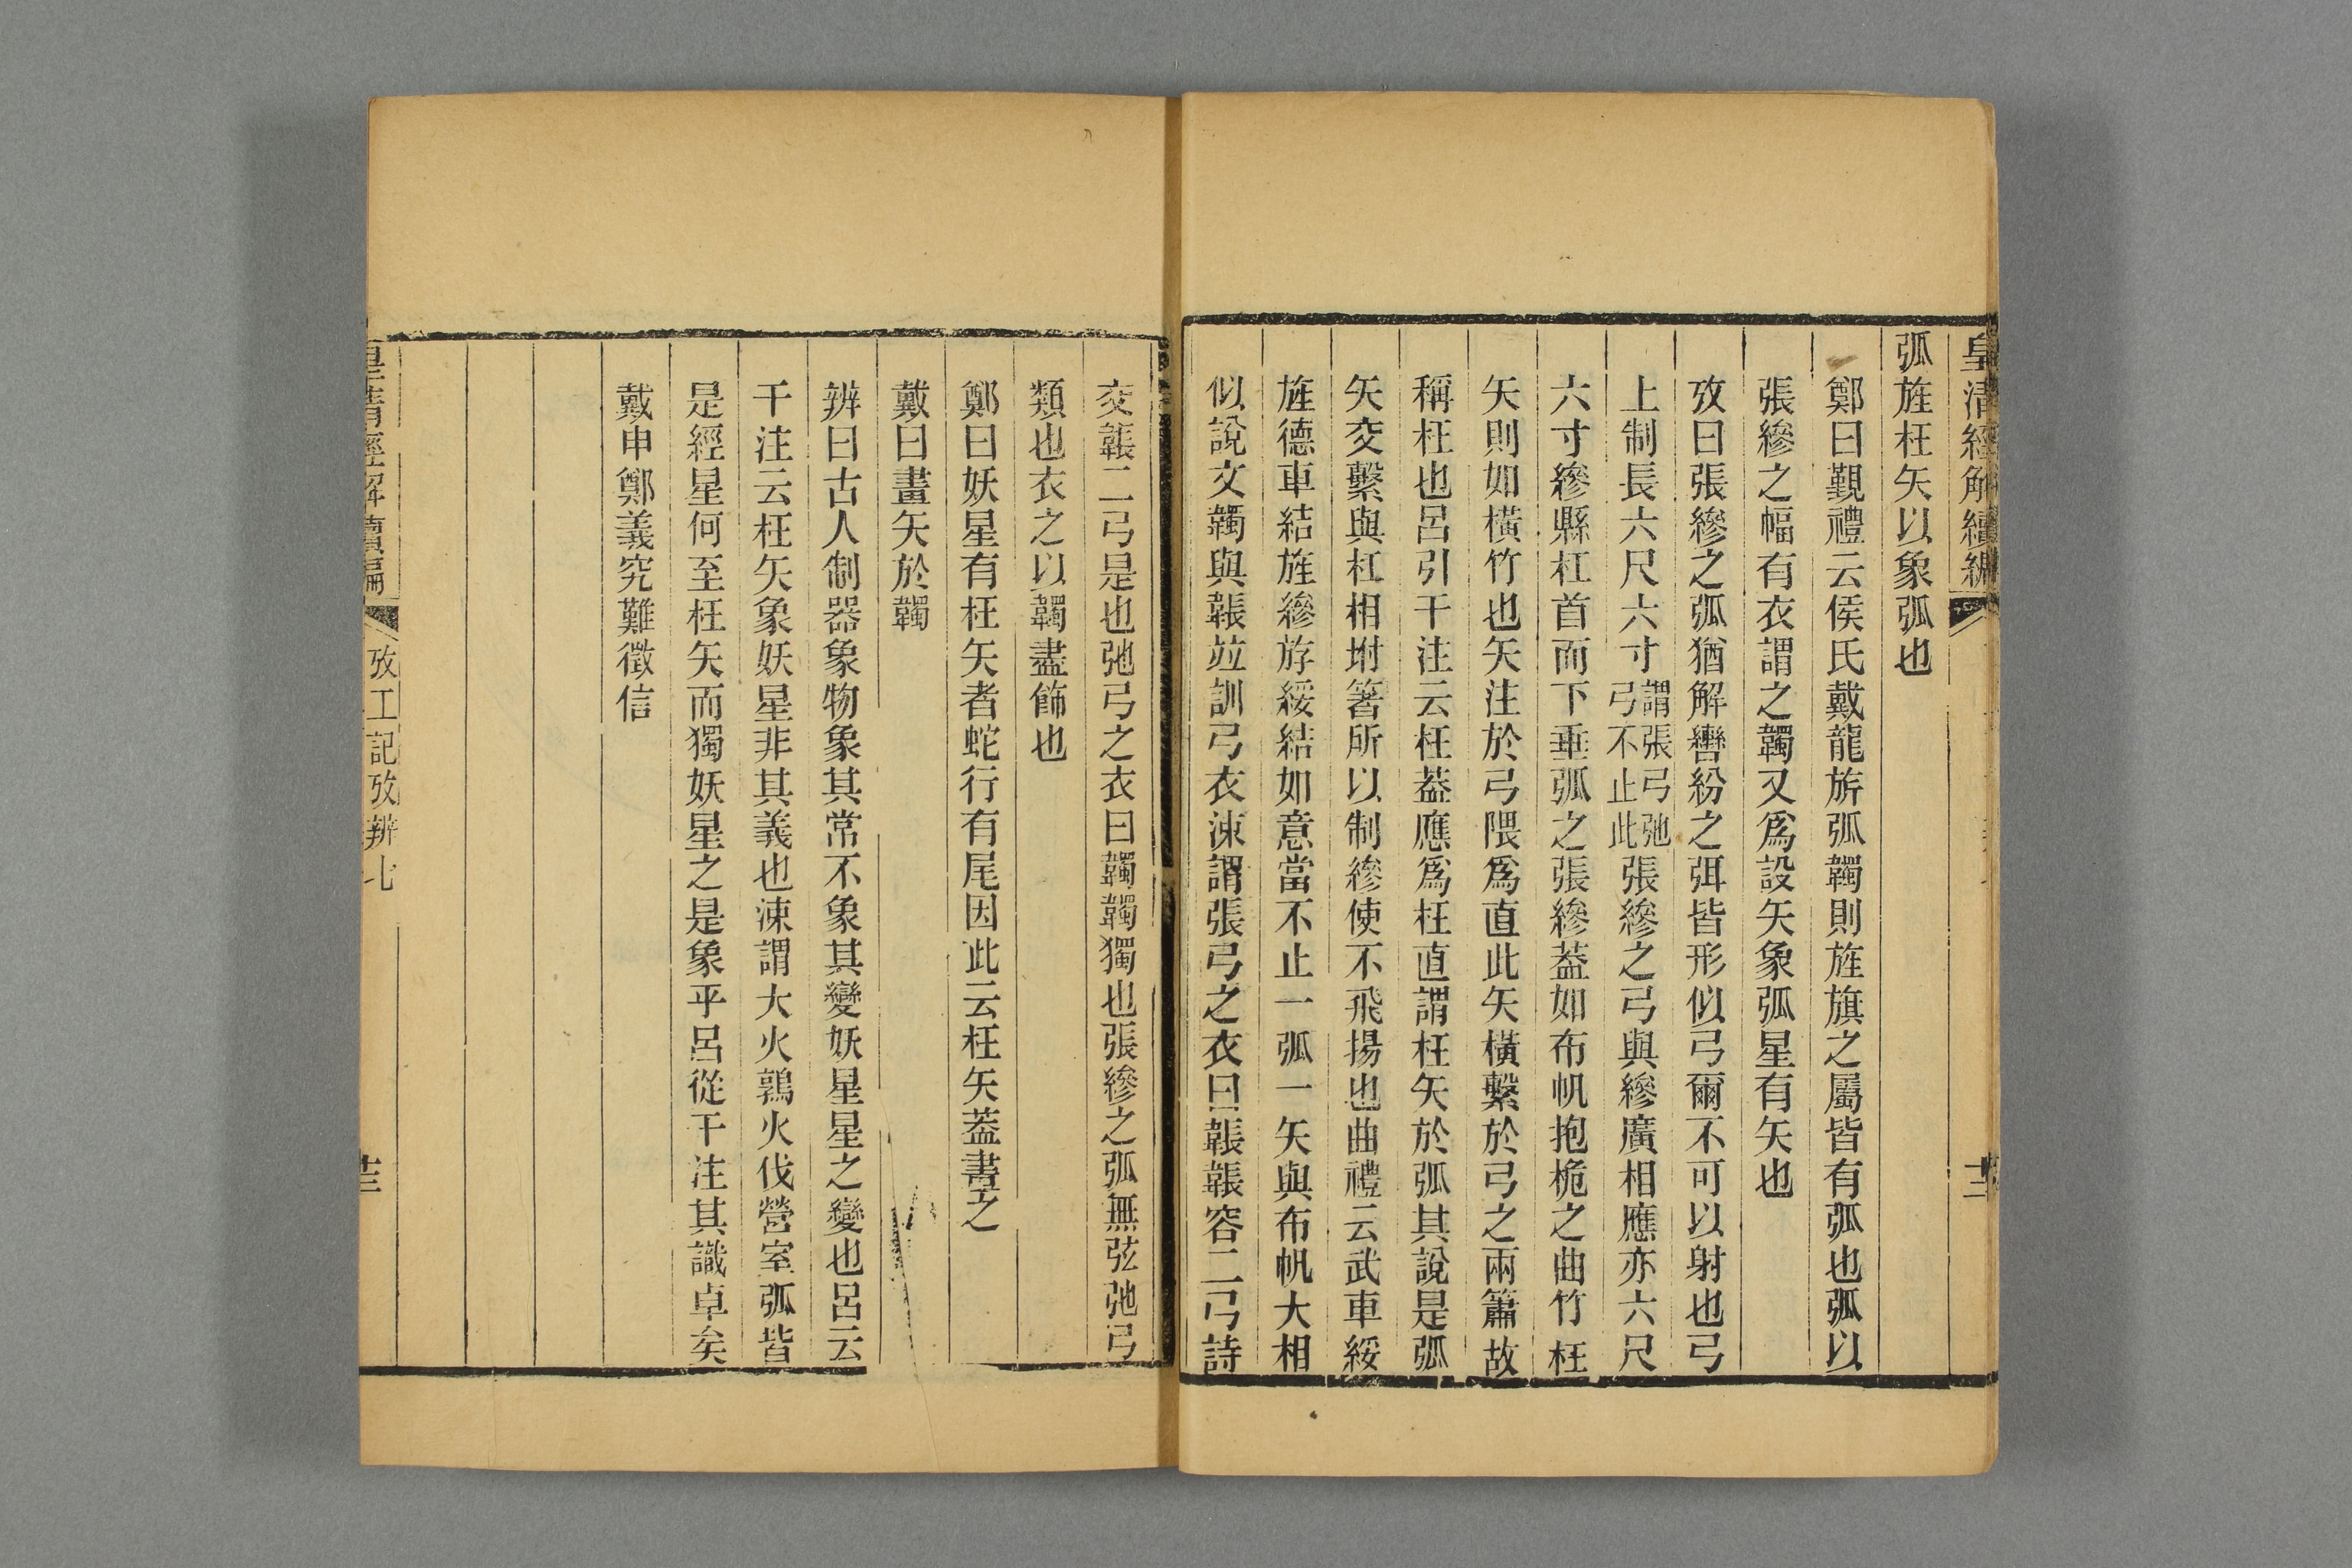 皇清經解續編
弧旌枉矢以象弧也
鄭曰覲禮云侯氏戴龍旂弧韣則旌旗之屬皆有弧也弧以
張縿之幅有衣謂之韣又爲設矢象弧星有矢也
攷曰張縿之弧猶解轡紛之弭皆形似弓爾不可以射也弓
上制長六尺六寸謂張弓弛弓不止此張縿之弓與縿廣相應亦六尺
六寸縿縣杠首而下垂弧之張縿葢如布帆抱桅之曲竹枉
矢則如橫竹也矢注於弓隈爲直此矢橫繫於弓之兩簫故
稱枉也呂引干注云枉葢應爲枉直謂枉矢於弧其說是弧
矢交繫與杠相坿箸所以制縿使不飛揚也曲禮云武車綏
旌德車結旌縿斿綏結如意當不止一弧一矢與布帆大相
似說文韣與韔竝訓弓衣涑謂張弓之衣曰韔韔容二弓詩
交韔二弓是也弛弓之衣曰韣韣獨也張縿之弧無弦弛弓
類也衣之以韣盡飾也
鄭曰妖星有枉矢者蛇行有尾因此云枉矢葢畫之
戴曰畫矢於韣
辨曰古人制器象物象其常不象其變妖星星之變也呂云
干注云枉矢象妖星非其義也涑謂大火鶉火伐營室弧皆
是經星何至枉矢而獨妖星之是象乎呂從干注其識卓矣
戴申鄭義究難徵信
皇清經解續編
攷工記攷辨七